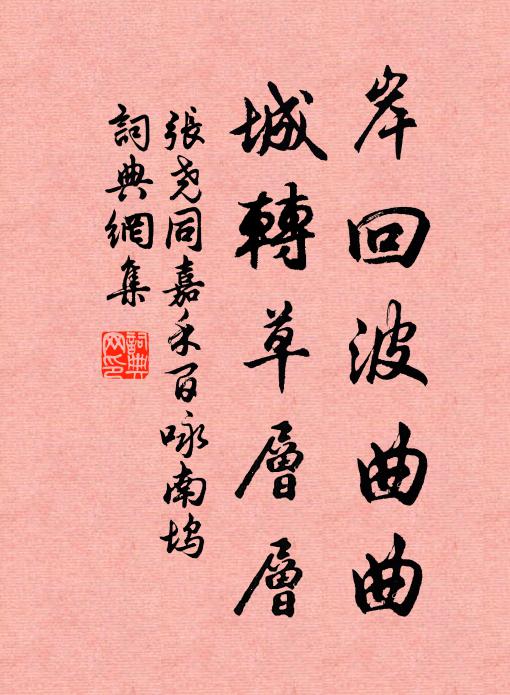 岸回波曲曲
城轉草層層
張堯同嘉禾百咏南塢
詞典網集
詞典网印